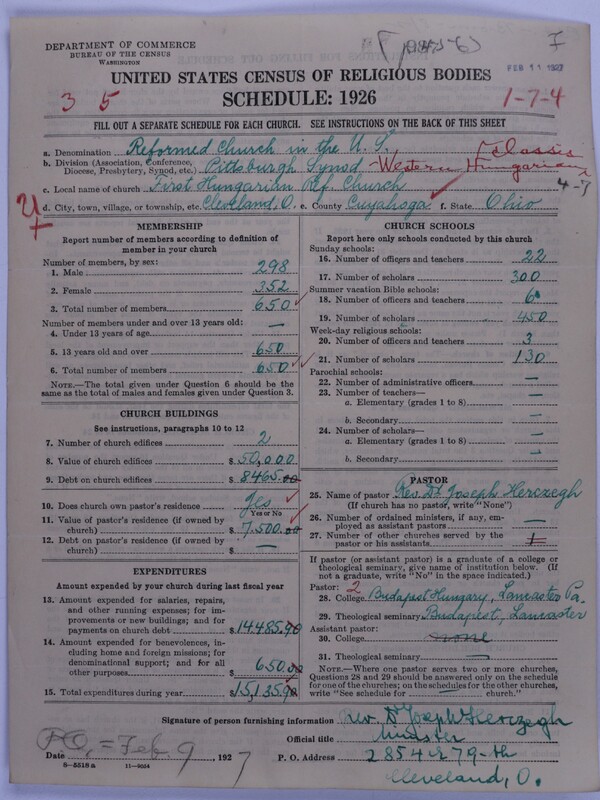 DEPARTMENT OF COMMERCE
BUREAU OF THE CENSUS
WASHINGTON
I
FEB 11 1927
UNITED STATES CENSUS OF RELIGIOUS BODIES
3 5
SCHEDULE: 1926
1-7-4
FILL OUT A SEPARATE SCHEDULE FOR EACH CHURCH. SEE INSTRUCTIONS ON THE BACK OF THIS SHEET
a. Denomination Reformed Church in the U. S.
b. Division (Association, Conference, Diocese, Presbytery, Synod, etc.) Pittsburgh Synod - Western Hungarian Classis
c. Local name of church First Hungarian Ref. Church
4-7
d. City, town, village, or township, etc. Cleveland, O. e. County Cuyahoga f. State Ohio
MEMBERSHIP
Report number of members according to definition of
member in your church
Number of members, by sex:
1. Male 298
2. Female 352
3. Total number of members 650
Number of members under and over 13 years old:
4. Under 13 years of age —
5. 13 years old and over 650
6. Total number of members 650
NOTE.—The total given under Question 6 should be the
same as the total of males and females given under Question 3.
CHURCH BUILDINGS
See instructions, paragraphs 10 to 12
7. Number of church edifices 2
8. Value of church edifices $ 50,000
9. Debt on church edifices $ 8465.00
10. Does church own pastor's residence Yes
Yes or No
11. Value of pastor's residence (if owned by
church) $ 7,500.00
12. Debt on pastor's residence (if owned by
church) $ —
EXPENDITURES
Amount expended by your church during last fiscal year
13. Amount expended for salaries, repairs,
and other running expenses; for im-
provements or new buildings; and for
payments on church debt $ 14,485.90
14. Amount expended for benevolences, in-
cluding home and foreign missions; for
denominational support; and for all
other purposes $ 650.00
15. Total expenditures during year $ 15,135.90
CHURCH SCHOOLS
Report here only schools conducted by this church
Sunday schools:
16. Number of officers and teachers 22
17. Number of scholars 300
Summer vacation Bible schools:
18. Number of officers and teachers 6
19. Number of scholars 450
Week-day religious schools:
20. Number of officers and teachers 3
21. Number of scholars 130
Parochial schools:
22. Number of administrative officers —
23. Number of teachers—
a. Elementary (grades 1 to 8) —
b. Secondary —
24. Number of scholars—
a. Elementary (grades 1 to 8) —
b. Secondary —
PASTOR
25. Name of pastor Rev. Dr. Joseph Herczegh
(If church has no pastor, write "None")
26. Number of ordained ministers, if any, em-
ployed as assistant pastors —
27. Number of other churches served by the
pastor or his assistants
If pastor (or assistant pastor) is a graduate of a college or
theological seminary, give name of institution below. (If
not a graduate, write "No" in the space indicated.)
Pastor: 2
28. College Budapest Hungary, Lancaster Pa.
29. Theological seminary Budapest, Lancaster
Assistant pastor:
30. College none
31. Theological seminary —
NOTE.—Where one pastor serves two or more churches,
Questions 28 and 29 should be answered only on the schedule
for one of the churches; on the schedules for the other churches,
write "See schedule for — church."
Signature of person furnishing information Rev. Dr Joseph Herczegh
Official title Minister
P.O. = Feb. 9
Date , 1927
P. O. Address 2854 E 79-th
Cleveland, O.
8-5518a 11-9034